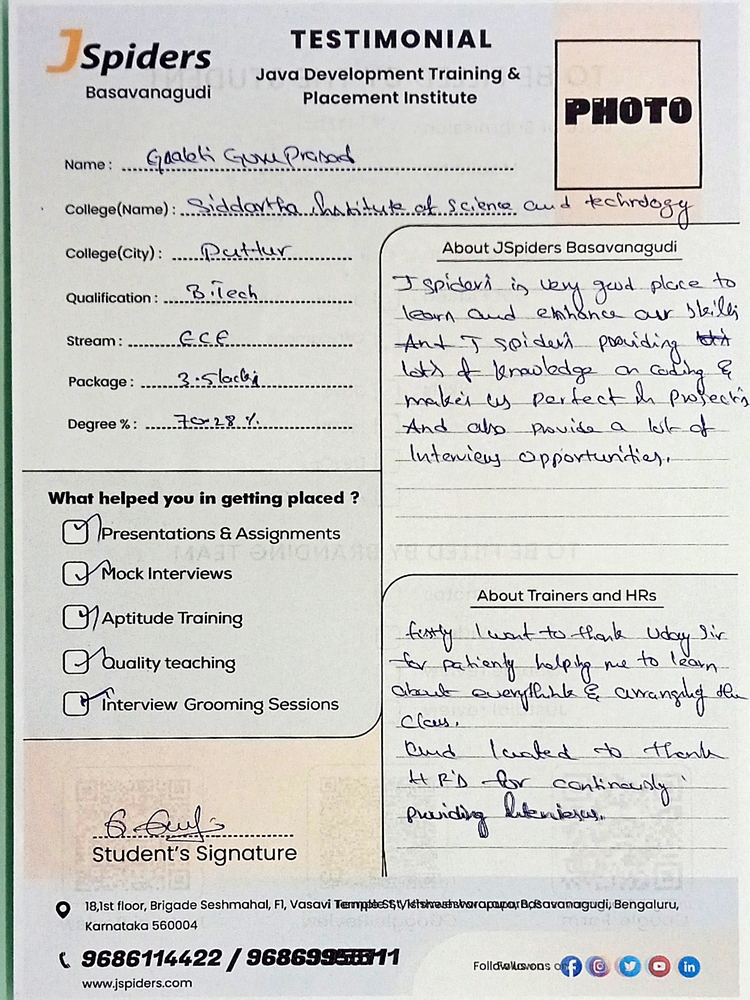 JSpiders
Basavanagudi
TESTIMONIAL
Java Development Training &
Placement Institute
PHOTO
Name : Gaaleti GuruPrasad
College(Name) : Siddartha Institute of science and technology
College(City) : Puttur
Qualification : B.Tech
Stream : ECE
Package : 3.5lacks
Degree % : 70.28 %
What helped you in getting placed ?
Presentations & Assignments
Mock Interviews
Aptitude Training
Quality teaching
Interview Grooming Sessions
About JSpiders Basavanagudi
J spiders is very good place to
learn and enhance our skills
And J spiders providing
lots of knowledge on coding &
makes us perfect in projects
And also provide a lot of
Interviews opportunities.
About Trainers and HRs
firstly I want to thank Uday Sir
for patienly helping me to learn
about everythink & arranging the
class.
And wated to thank
HR'S for continously
providing Interviews.
Student's Signature
18,1st floor, Brigade Seshmahal, F1, Vasavi Temple St, Vishweshwarapura, Basavanagudi, Bengaluru,
Karnataka 560004
9686114422 /
www.jspiders.com
Follow us on